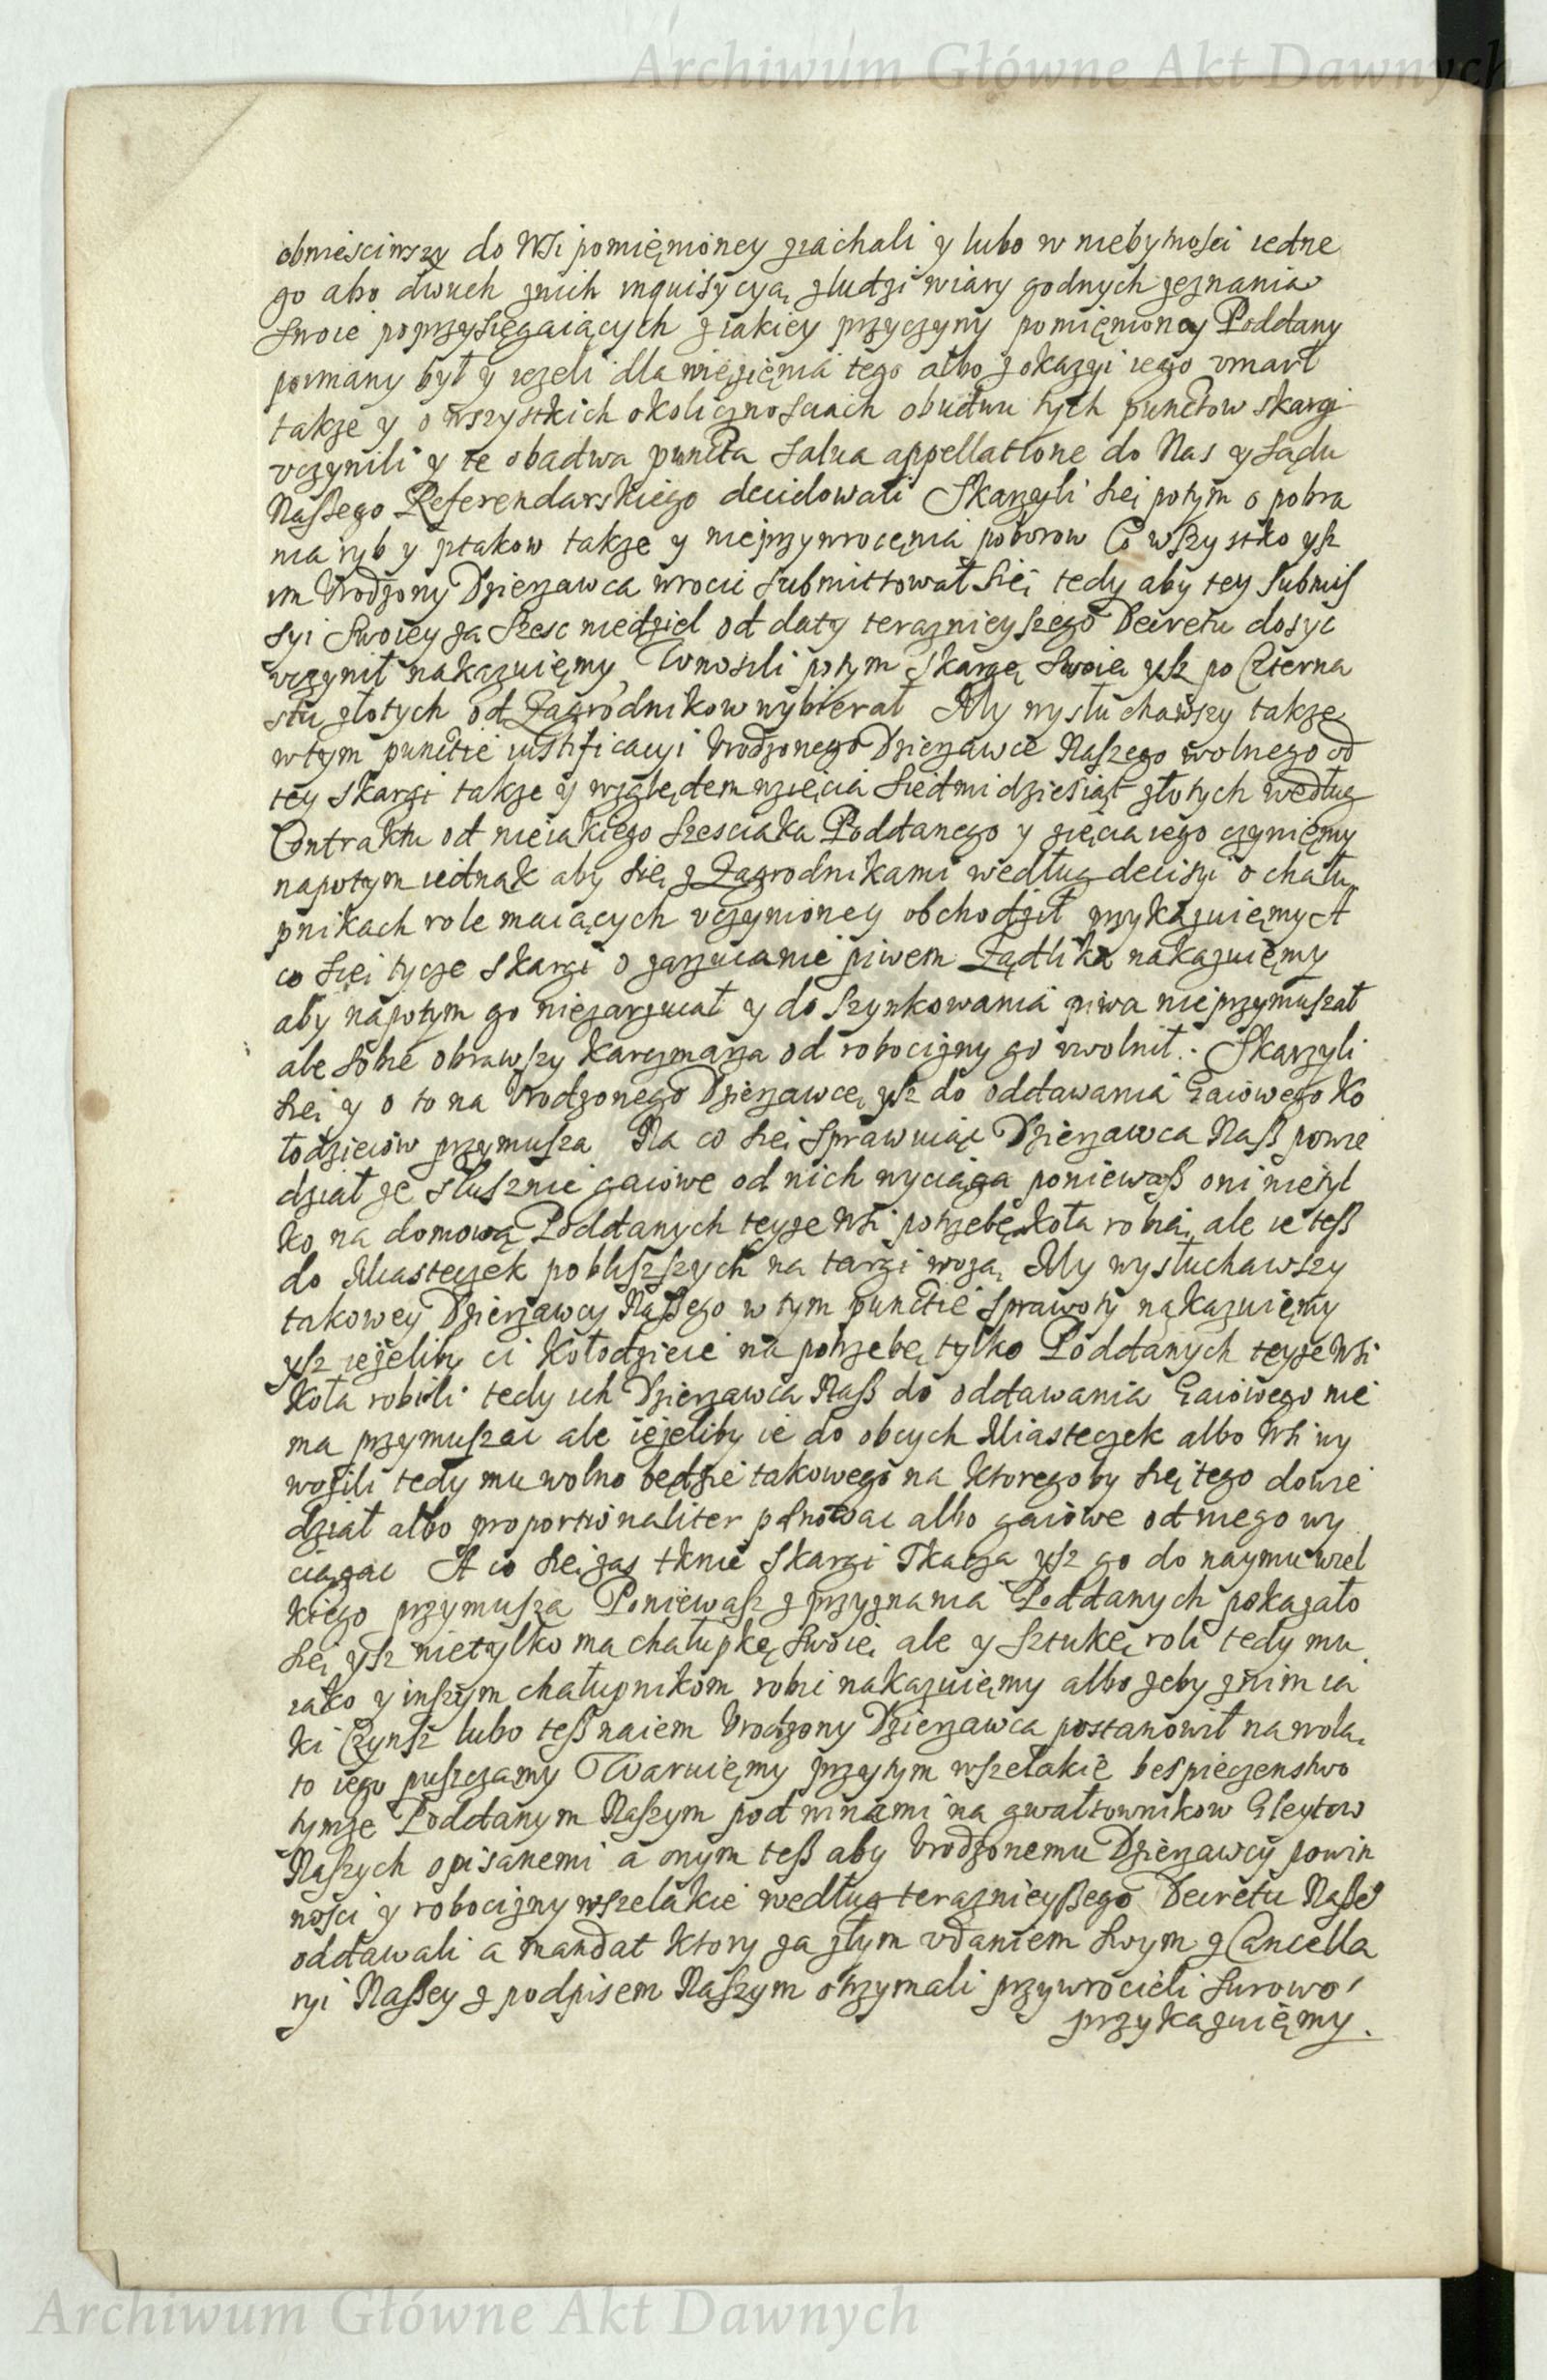 Archiwum Główne Akt Dawnych
obwieściwszy do Wsi pomięnioney zjachali y lubo w niebytności iedne
go abo dwuch znich inquisycyą zludzi wiary godnych zeznania
swoie poprzysięgaiących z iakiey przyczyny pomięnioney Poddany
poimany był y iezeli dla więzięnia tego albo z okazyi iego vmarł
takze y o wszystkich okolicznosciach obudwu tych punctow skargi
vczynili y te obadwa puncta salua appellatione do Nas y sądu
Naßego Referendarskiego decidowali Skarzyli się potym o pobra
nia ryb y ptakow takze y nieprzywrocęnia poborow Co wszystko ysz
im Vrodzony Dzierzawca wrocic submittował się tedy aby tey submis
syi swoiey za szesc niedziel od daty teraznieyszego Decretu dosyc
vczynił nakazuięmy, Wnosili potym skargę swoię ysz po Czterna
stu złotych od Zagrodnikow wybierał My wysłuchawszy takze
w tym punctie iustificacyi Vrodzonego Dzierzawce Naszego wolnego od
tey skargi takze y względem wzięcia siedmidziesiąt złotych według
Contraktu od nieiakiego Szesciaka Poddanego y zięcia iego czynięmy
napotym iednak aby się z Zagrodnikami według decisyi o chału
pnikach role maiących vczynioney obchodził przykazuięmy A
co się tycze skargi o zarzucanie piwem nakazuięmy
aby napotym go niezarzucał y do szynkowania piwa nieprzymuszał
ale sobie obrawszy karczmarza od robocizny go vwolnił. Skarzyli
się y o to na Vrodzonego Dzierzawcę ysz do oddawania Gaiowego Ko
łodzieiow przymusza Na co się sprawuiąc Dzierzawca Naß powie
dział ze słusznie gaiowe od nich wyciąga poniewaß oni nietyl
ko na domową Poddanych teyze Wsi potrzebę koła robią, ale ie teß
do Miasteczek pobliszszych na targi wozą, My wysłuchawszy
takowey Dzierzawcy Naßego w tym punctie sprawoty nakazuięmy
ysz iezeliby ci Kołodzieie na potrzebę tylko Poddanych teyze Wsi
koła robili tedy ich Dzierzawca Naß do oddawania Gaiowego nie
ma przymuszac ale iezeliby ie do obcych Miasteczek albo Wsi wy
wozili tedy mu wolno będzie takowego na ktoregoby się tego dowie
dział albo proportionaliter albo gaiowe od niego wy
ciągac A co się zas tknie skargi Tkacza ysz go do naymu wiel
kiego przymusza Poniewasz z przyznania Poddanych pokazało
się ysz nietylko ma chałupkę swoię ale y sztukę roli tedy mu
iako y inszym chałupnikom robic nakazuięmy albo zeby znim ia
ki Czynsz lubo teß naiem Vrodzony Dzierzawca postanowił na wolą
to iego puszczamy Waruięmy przytym wszelakie bespieczenstwo
tymze Poddanym Naszym pod winami na gwałtownikow Gleytow
Naszych opisanemi a onym teß aby Vrodzonemu Dzierzawcy powin
nosci y robocizny wszelakie według teraznieyßego Decretu Naße°
oddawali a mandat ktory za złym vdaniem swym z Cancella
ryi Naßey z podpisem Naszym otrzymali przywrocieli surowo
przykazuięmy.
Archiwum Główne Akt Dawnych